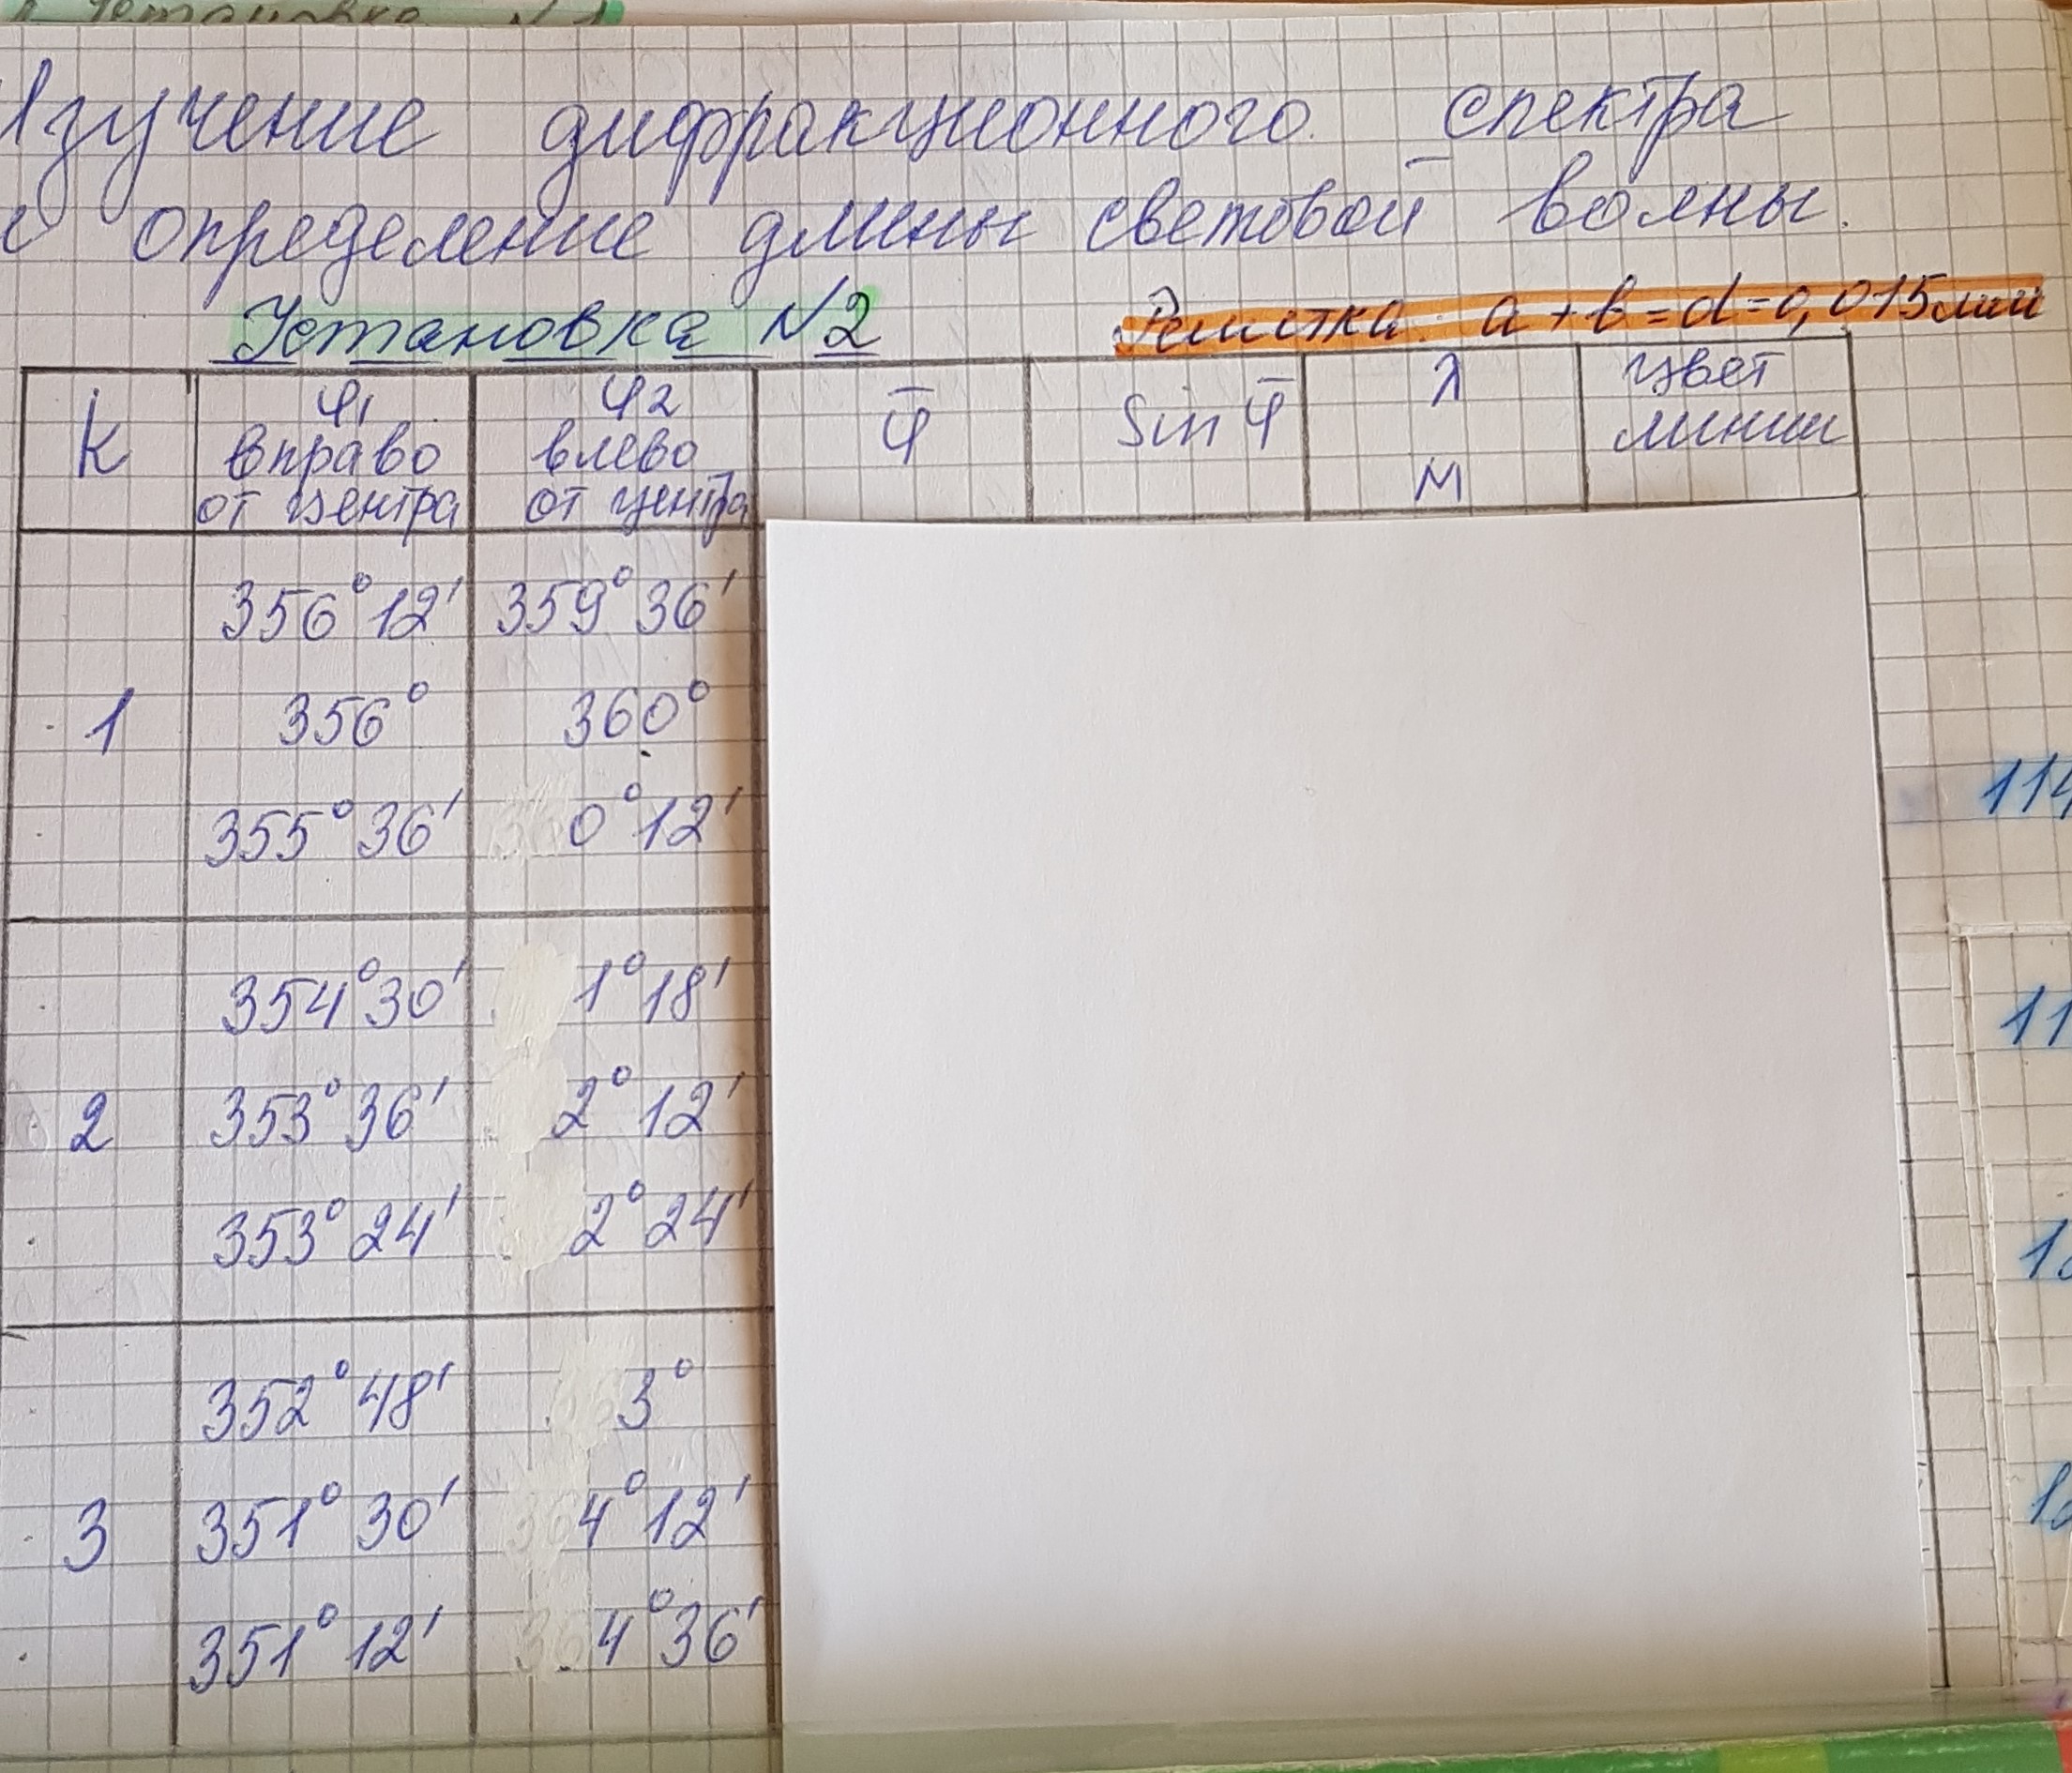 Установка N1
Изучение дифракционного спектра
и определение длины световой волны.
Установка N2
Решетка: a + b = d = 0,015 мм
k φ1 вправо от центра φ2 влево от центра φ̄ Sin φ̄ λ м цвет линии
356°12' 359°36'
1 356° 360°
355°36' 0°12'
114
354°30' 1°18'
11
2 353°36' 2°12'
353°24' 2°24'
352°48' 3°
3 351°30' 4°12'
351°12' 4°36'